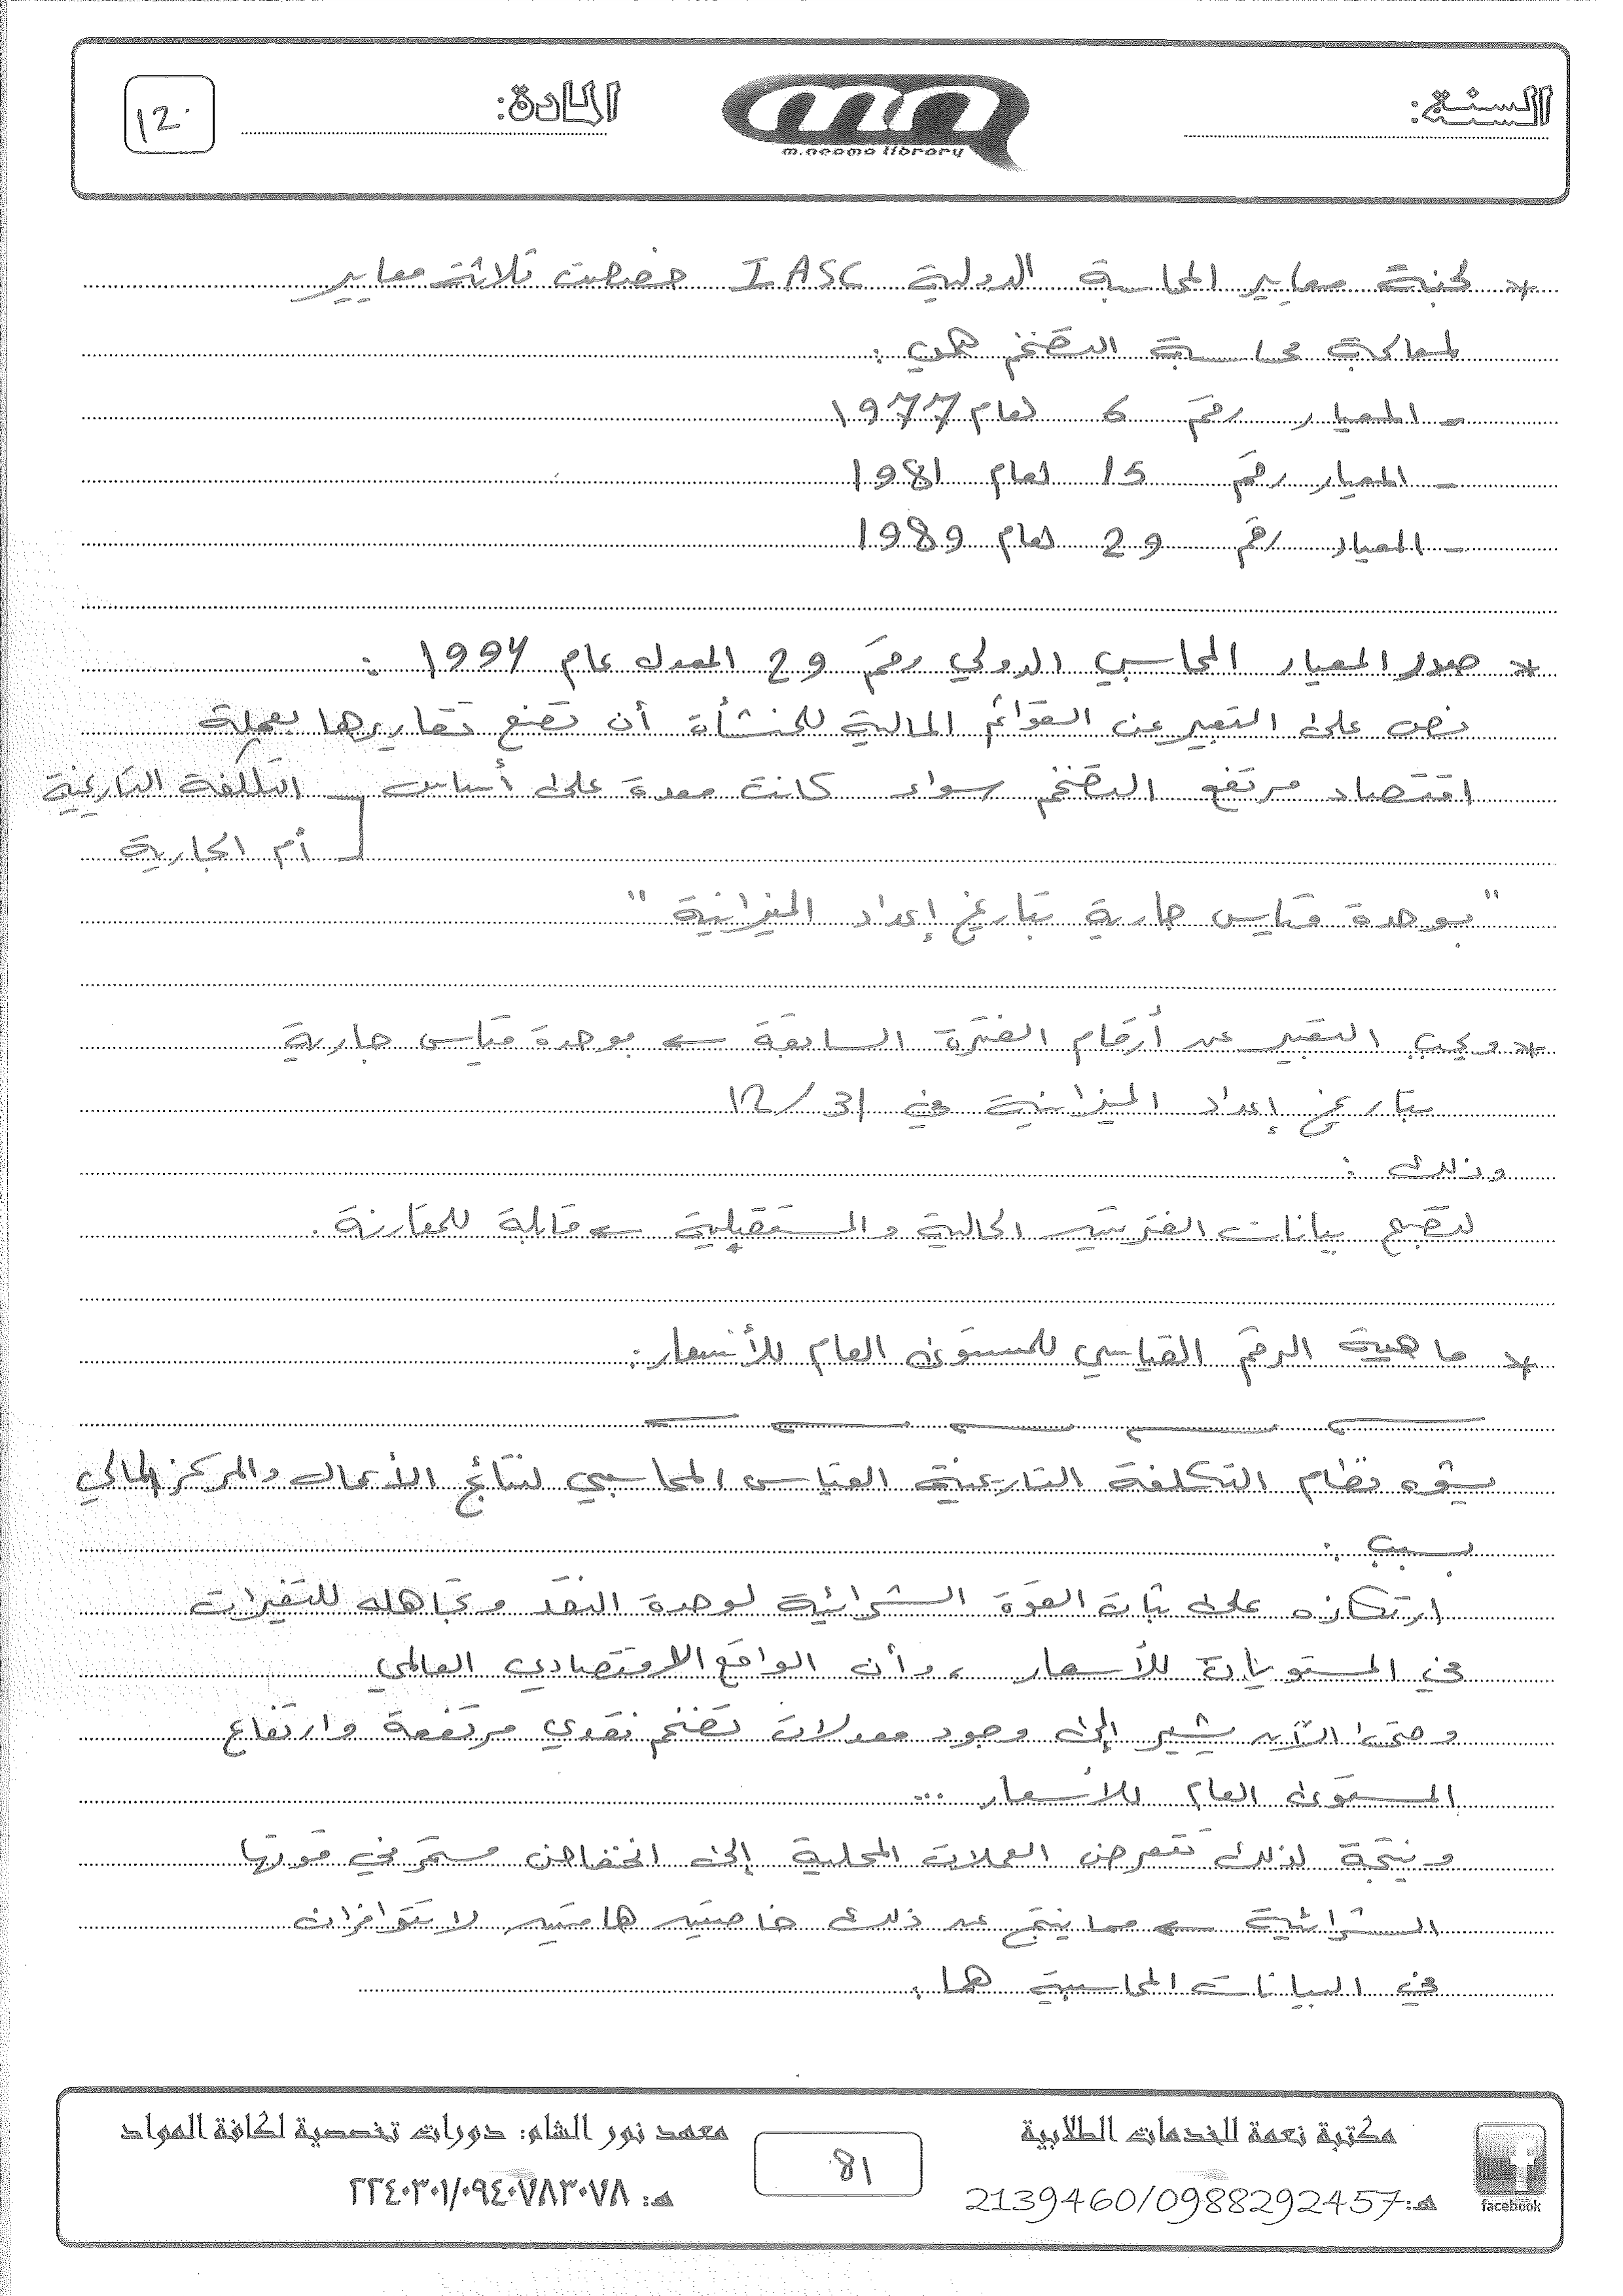 السنة:
m.neama library
المادة:
12.
* لجنة معايير المحاسبة الدولية IASC خصصت ثلاثة معايير
لمعالجة محاسبة التضخم هي:
- المعيار رقم 6 لعام 1977
- المعيار رقم 15 لعام 1981
- المعيار رقم 29 لعام 1989
* صدر المعيار المحاسبي الدولي رقم 29 المعدل عام 1994 :
نص على التعبير عن القوائم المالية للمنشأة أن تضع تقاريرها بعملة
اقتصاد مرتفع التضخم سواء كانت معدة على أساس - التكلفة التاريخية
أم الجارية
"بوحدة قياس جارية بتاريخ إعداد الميزانية"
* ويجب التعبير عن أرقام الفترة السابقة ← بوحدة قياس جارية
بتاريخ إعداد الميزانية في 31/12
وذلك :
لتصبح بيانات الفترتين الحالية والمستقبلية ← قابلة للمقارنة.
* ما هية الرقم القياسي للمستوى العام للأسعار:
يشوه نظام التكلفة التاريخية القياس المحاسبي لنتائج الأعمال والمركز المالي
بسبب :
ارتكازه على ثبات القوة الشرائية لوحدة النقد وتجاهله للتغيرات
في المستويات للأسعار ، وأن الواقع الاقتصادي العالمي
وحتى الآن يشير إلى وجود معدلات تضخم نقدي مرتفعة وارتفاع
المستوى العام للأسعار ...
ونتيجة لذلك تتعرض العملات المحلية إلى انخفاض مستمر في قوتها
الشرائية ← مما ينتج عن ذلك خاصتين هامتين لا تتوافران
في البيانات المحاسبية هما:
facebook
مكتبة نعمة للخدمات الطلابية
هـ: 2139460/0988292457
81
معهد نور الشام: دورات تخصصية لكافة المواد
هـ: ٢٢٤٠٣٠١/٠٩٤٠٧٨٣٠٧٨